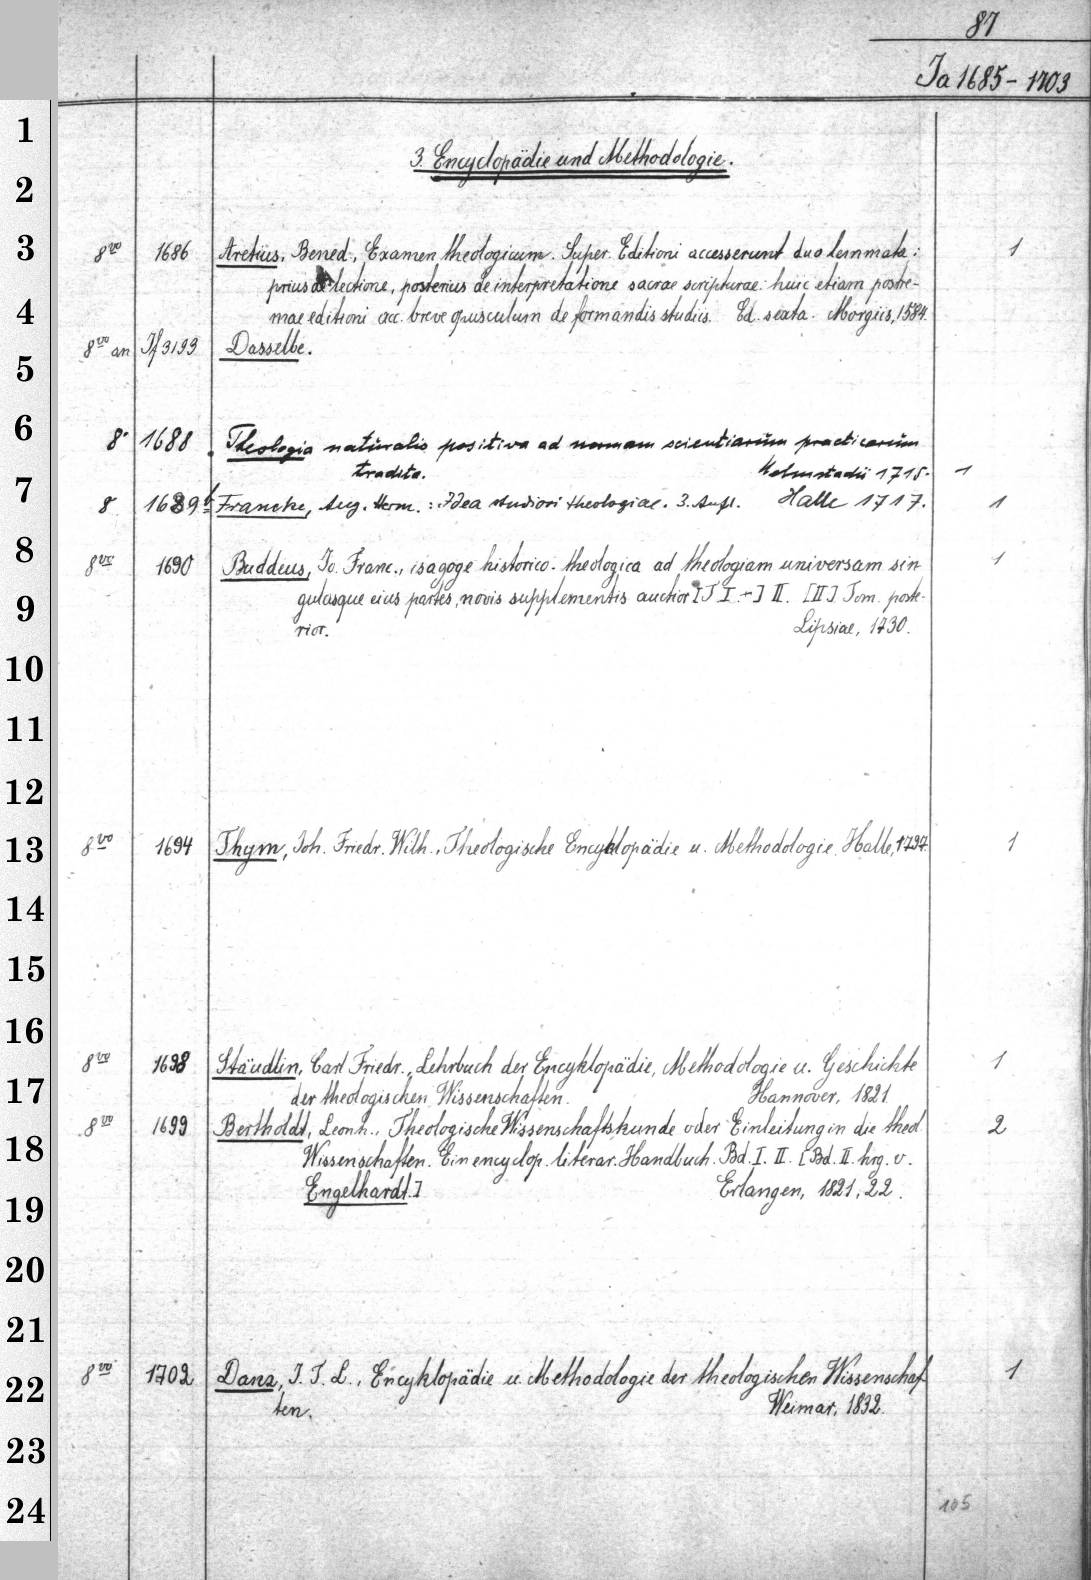 87
Ja 1685 - 1703
3. Encyclopädie und Methodologie.
8vo 1686 Aretius, Bened., Examen theologicum. Super. Editioni accesserunt duo lemmata: 1
prius de lectione, posterius de interpretatione sacrae scripturae: huic etiam postre-
mae editioni acc. breve opusculum de formandis studiis. Ed. sexta. Morgiis, 1584.
8vo an Jf 3193 Dasselbe.
8° 1688 Theologia naturalis positiva ad normam scientiarum practicarum
tradita. Helmstadii 1715. 1
8° 1689b Francke, Aug. Herm.: Idea studiori theologiae. 3. Aufl. Halle 1717. 1
8vo 1690 Buddeus, Jo. Franc., isagoge historico-theologica ad theologiam universam sin- 1
gulasque eius partes, novis supplementis auctior [T I -] II. [II] Tom. poste-
rior. Lipsiae, 1730.
8vo 1694 Thym, Joh. Friedr. Wilh., Theologische Encyklopädie u. Methodologie. Halle, 1797. 1
8vo 1698 Stäudlin, Carl Friedr., Lehrbuch der Encyklopädie, Methodologie u. Geschichte 1
der theologischen Wissenschaften. Hannover, 1821
8vo 1699 Bertholdt, Leonh., Theologische Wissenschaftskunde oder Einleitung in die theol 2
Wissenschaften. Ein encyclop. literar. Handbuch. Bd. I. II. [Bd. II. hrg. v.
Engelhardt.] Erlangen, 1821, 22.
8vo 1702 Danz, J. T. L., Encyklopädie u. Methodologie der theologischen Wissenschaf 1
ten. Weimar, 1832.
105
1
2
3
4
5
6
7
8
9
10
11
12
13
14
15
16
17
18
19
20
21
22
23
24